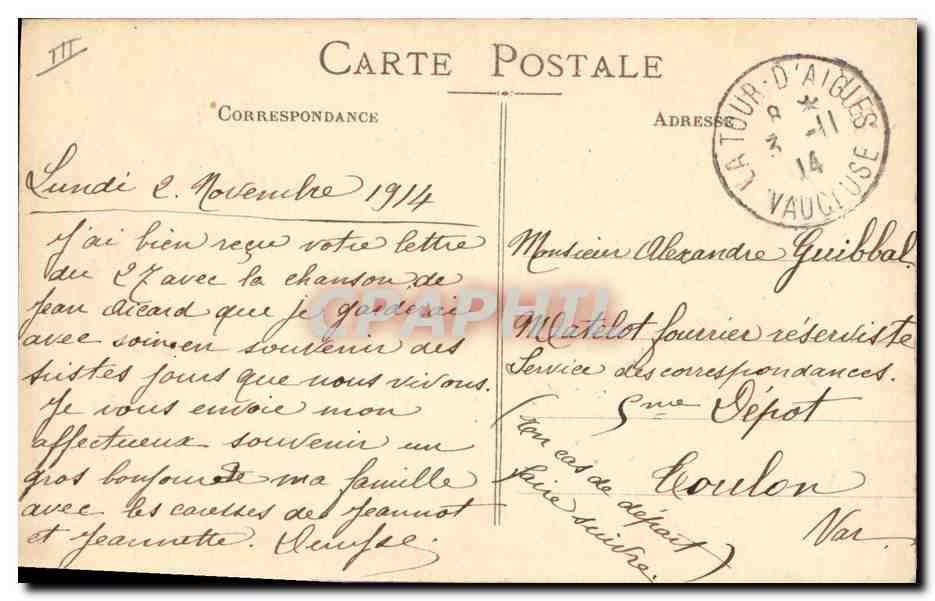 III
CARTE POSTALE
CORRESPONDANCE
ADRESSE
LA TOUR-D'AIGUES
8 *
3 -11
14
VAUCLUSE
Lundi 2. Novembre 1914
J'ai bien reçu votre lettre
du 27 avec la chanson de
Jean Aicard que je garderai
avec soin en souvenir des
tristes jours que nous vivons.
Je vous envoie mon
affectueux souvenir un
gros bonjour de ma famille
avec les caresses de Jeannot
et Jeannette. Denyse.
Monsieur Alexandre Guibbal.
Matelot fourrier réserviste
Service des correspondances.
5me Dépot
Toulon
Var.
(en cas de départ
faire suivre.)
CPAPHIL